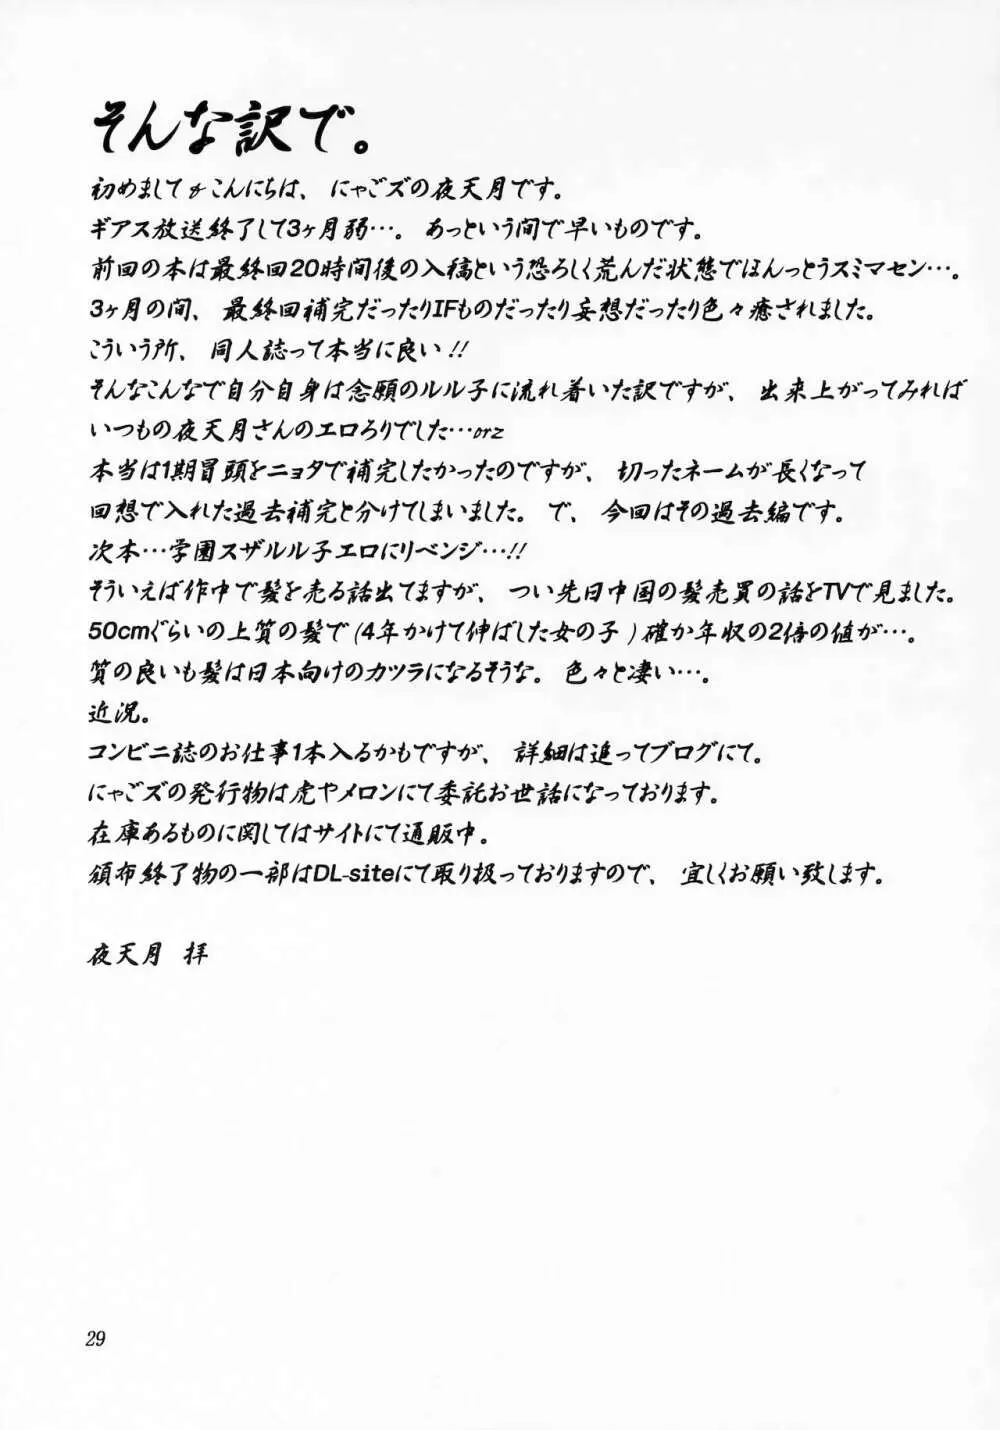 そんな訳で。
初めましてかこんにちは、にゃごズの夜天月です。
ギアス放送終了して3ヶ月弱…。あっという間で早いものです。
前回の本は最終回20時間後の入稿という恐ろしく荒んだ状態でほんっとうスミマセン…。
3ヶ月の間、最終回補完だったりIFものだったり妄想だったり色々癒されました。
こういう所、同人誌って本当に良い!!
そんなこんなで自分自身は念願のルル子に流れ着いた訳ですが、出来上がってみれば
いつもの夜天月さんのエロろりでした…orz
本当は1期冒頭をニョタで補完したかったのですが、切ったネームが長くなって
回想で入れた過去補完と分けてしまいました。で、今回はその過去編です。
次本…学園スザルル子エロにリベンジ…!!
そういえば作中で髪を売る話出てますが、つい先日中国の髪売買の話をTVで見ました。
50cmぐらいの上質の髪で(4年かけて伸ばした女の子)確か年収の2倍の値が…。
質の良いも髪は日本向けのカツラになるそうな。色々と凄い…。
近況。
コンビニ誌のお仕事1本入るかもですが、詳細は追ってブログにて。
にゃごズの発行物は虎やメロンにて委託お世話になっております。
在庫あるものに関してはサイトにて通販中。
頒布終了物の一部はDL-siteにて取り扱っておりますので、宜しくお願い致します。
夜天月 拝
29